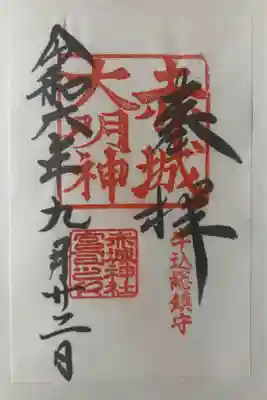 奉拝
牛込総鎮守
赤城
大明神
赤城神社
宮司之印
令和六年九月廿二日